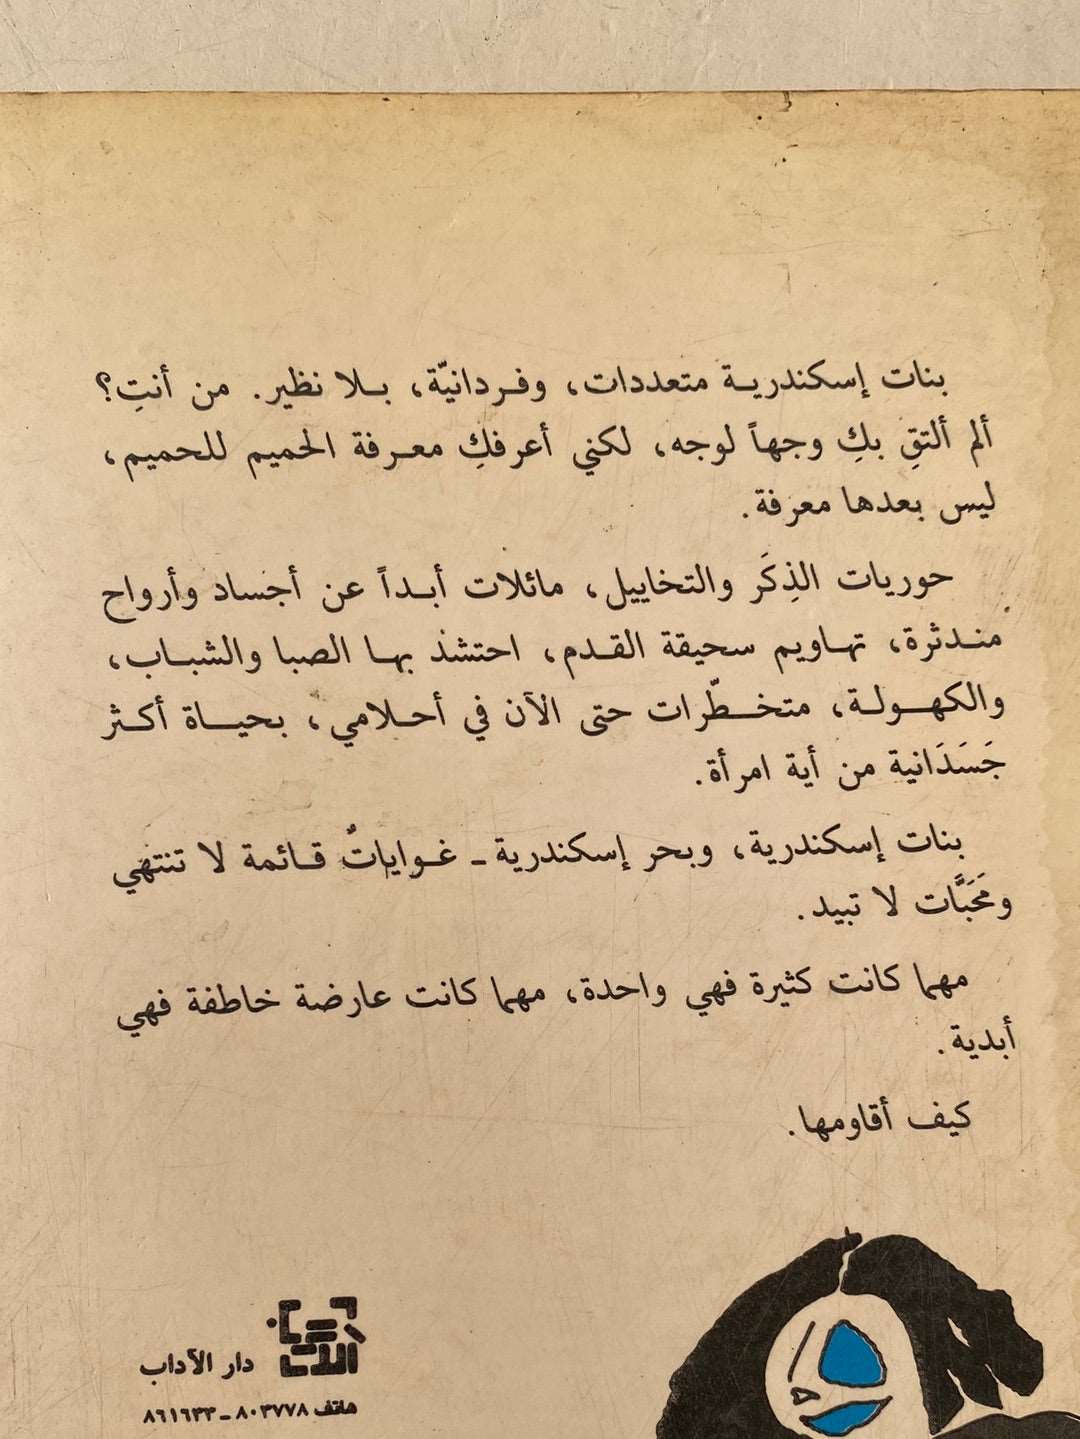 بنات إسكندرية متعددات، وفردانيّة، بلا نظير. من أنتِ؟
ألم ألتقِ بكِ وجهاً لوجه، لكني أعرفكِ معرفة الحميم للحميم،
ليس بعدها معرفة.
حوريات الذِكَر والتخاييل، مائلات أبداً عن أجساد وأرواح
مندثرة، تهاويم سحيقة القدم، احتشذ بها الصبا والشباب،
والكهولة، متخطّرات حتى الآن في أحلامي، بحياة أكثر
جَسَدَانية من أية امرأة.
بنات إسكندرية، وبحر إسكندرية ـ غواياتٌ قائمة لا تنتهي
ومَحَبَّات لا تبيد.
مهما كانت كثيرة فهي واحدة، مهما كانت عارضة خاطفة فهي
أبدية.
كيف أقاومها.
دار الآداب
هاتف ٨٠٣٧٧٨ ـ ٨٦١٦٣٣